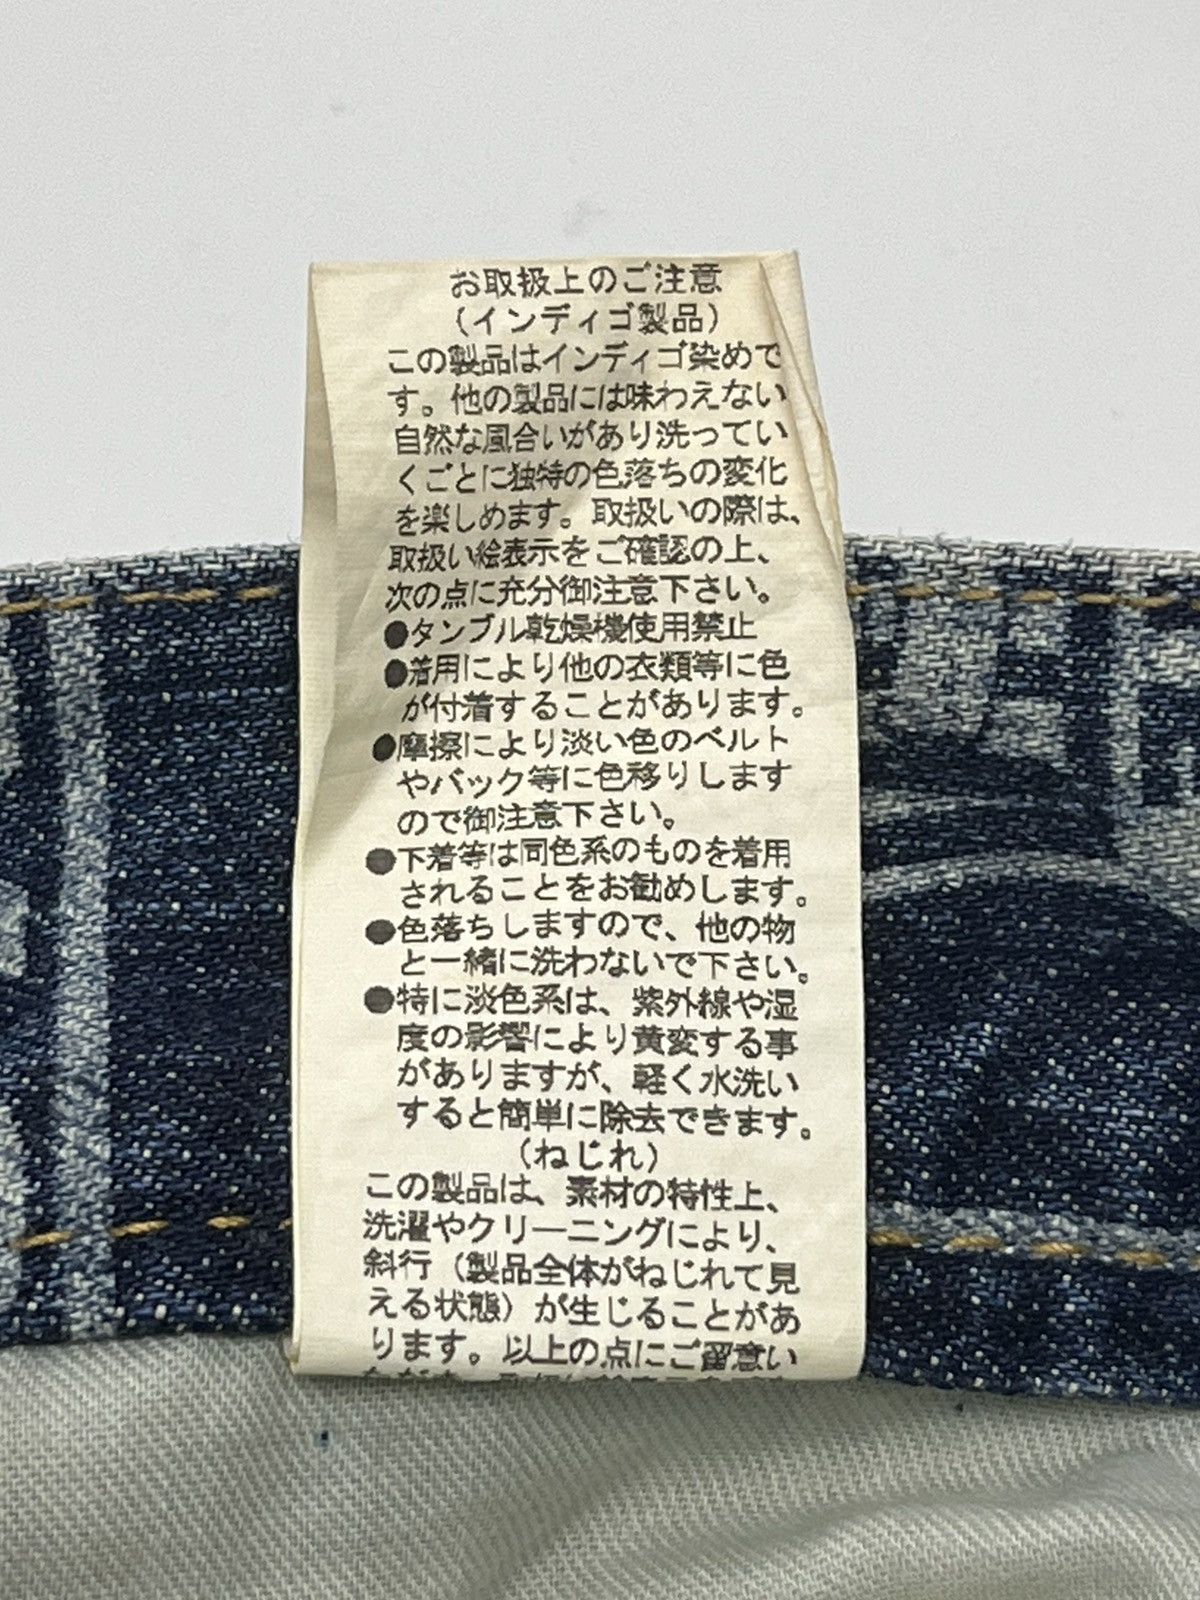 お取扱上のご注意
（インディゴ製品）
この製品はインディゴ染めで
す。他の製品には味わえない
自然な風合いがあり洗ってい
くごとに独特の色落ちの変化
を楽しめます。取扱いの際は、
取扱い絵表示をご確認の上、
次の点に充分御注意下さい。
●タンブル乾燥機使用禁止
●着用により他の衣類等に色
が付着することがあります。
●摩擦により淡い色のベルト
やバック等に色移りします
ので御注意下さい。
●下着等は同色系のものを着用
されることをお勧めします。
●色落ちしますので、他の物
と一緒に洗わないで下さい。
●特に淡色系は、紫外線や湿
度の影響により黄変する事
がありますが、軽く水洗い
すると簡単に除去できます。
（ねじれ）
この製品は、素材の特性上、
洗濯やクリーニングにより、
斜行（製品全体がねじれて見
える状態）が生じることがあ
ります。以上の点にご留意い